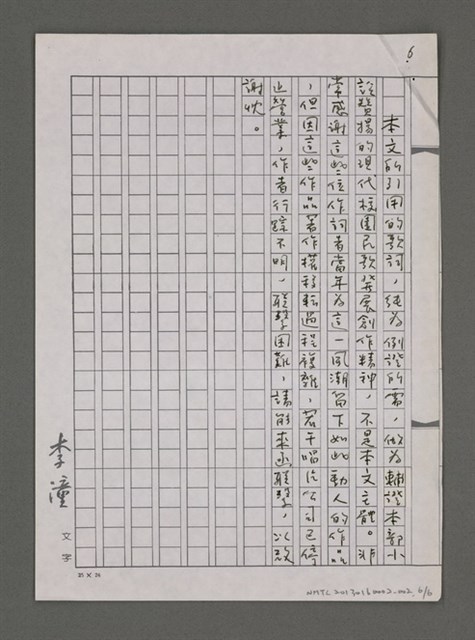 6
本文所引用的歌詞，純為例證所需，做為輔證本部小
說贊揚的現代校園民歌發展創作精神，不是本文主體。非
常感謝這些位作詞者當年為這一風潮留下如此動人的作品
，但因這些作品著作權移轉過程複雜，若干唱片公司已停
止營業，作者行踪不明，聯繫困難，請能來函聯繫，以致
謝忱。
李潼
文字
25 × 24
NMTL20130160002-002 6/6